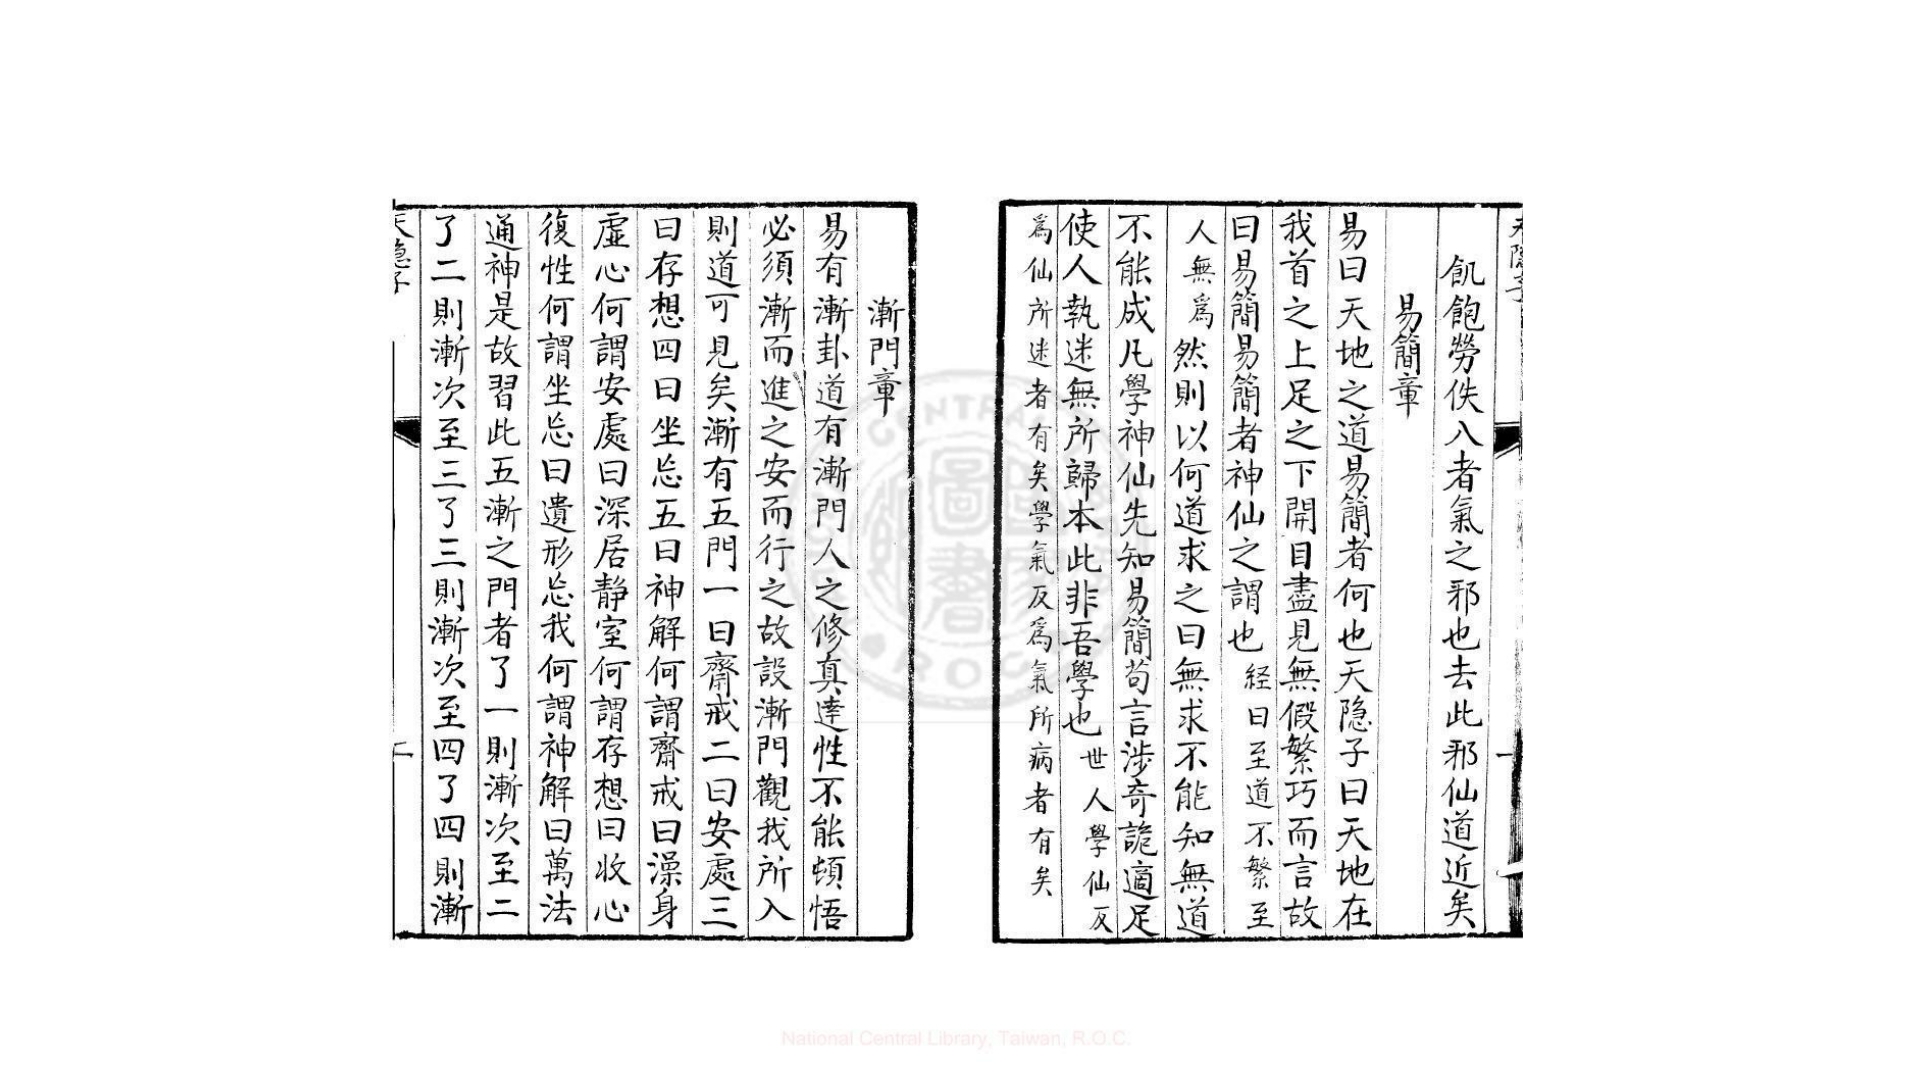 天隱子
飢飽勞佚八者氣之邪也去此邪仙道近矣
易簡章
易曰天地之道易簡者何也天隐子曰天地在
我首之上足之下開目盡見無假繁巧而言故
曰易簡易簡者神仙之謂也経曰至道不繁至
人無爲然則以何道求之曰無求不能知無道
不能成凡學神仙先知易簡苟言涉奇詭適足
使人執迷無所歸本此非吾學也世人學仙反
爲仙所迷者有矣學氣反爲氣所病者有矣
一
漸門章
易有漸卦道有漸門人之修真達性不能頓悟
必須漸而進之安而行之故設漸門觀我所入
則道可見矣漸有五門一曰齋戒二曰安處三
曰存想四曰坐忘五曰神解何謂齋戒曰澡身
虛心何謂安處曰深居静室何謂存想曰收心
復性何謂坐忘曰遺形忘我何謂神解曰萬法
通神是故習此五漸之門者了一則漸次至二
了二則漸次至三了三則漸次至四了四則漸
天隱子
二
圖書
CENTRAL
R.O.C
National Central Library, Taiwan, R.O.C.